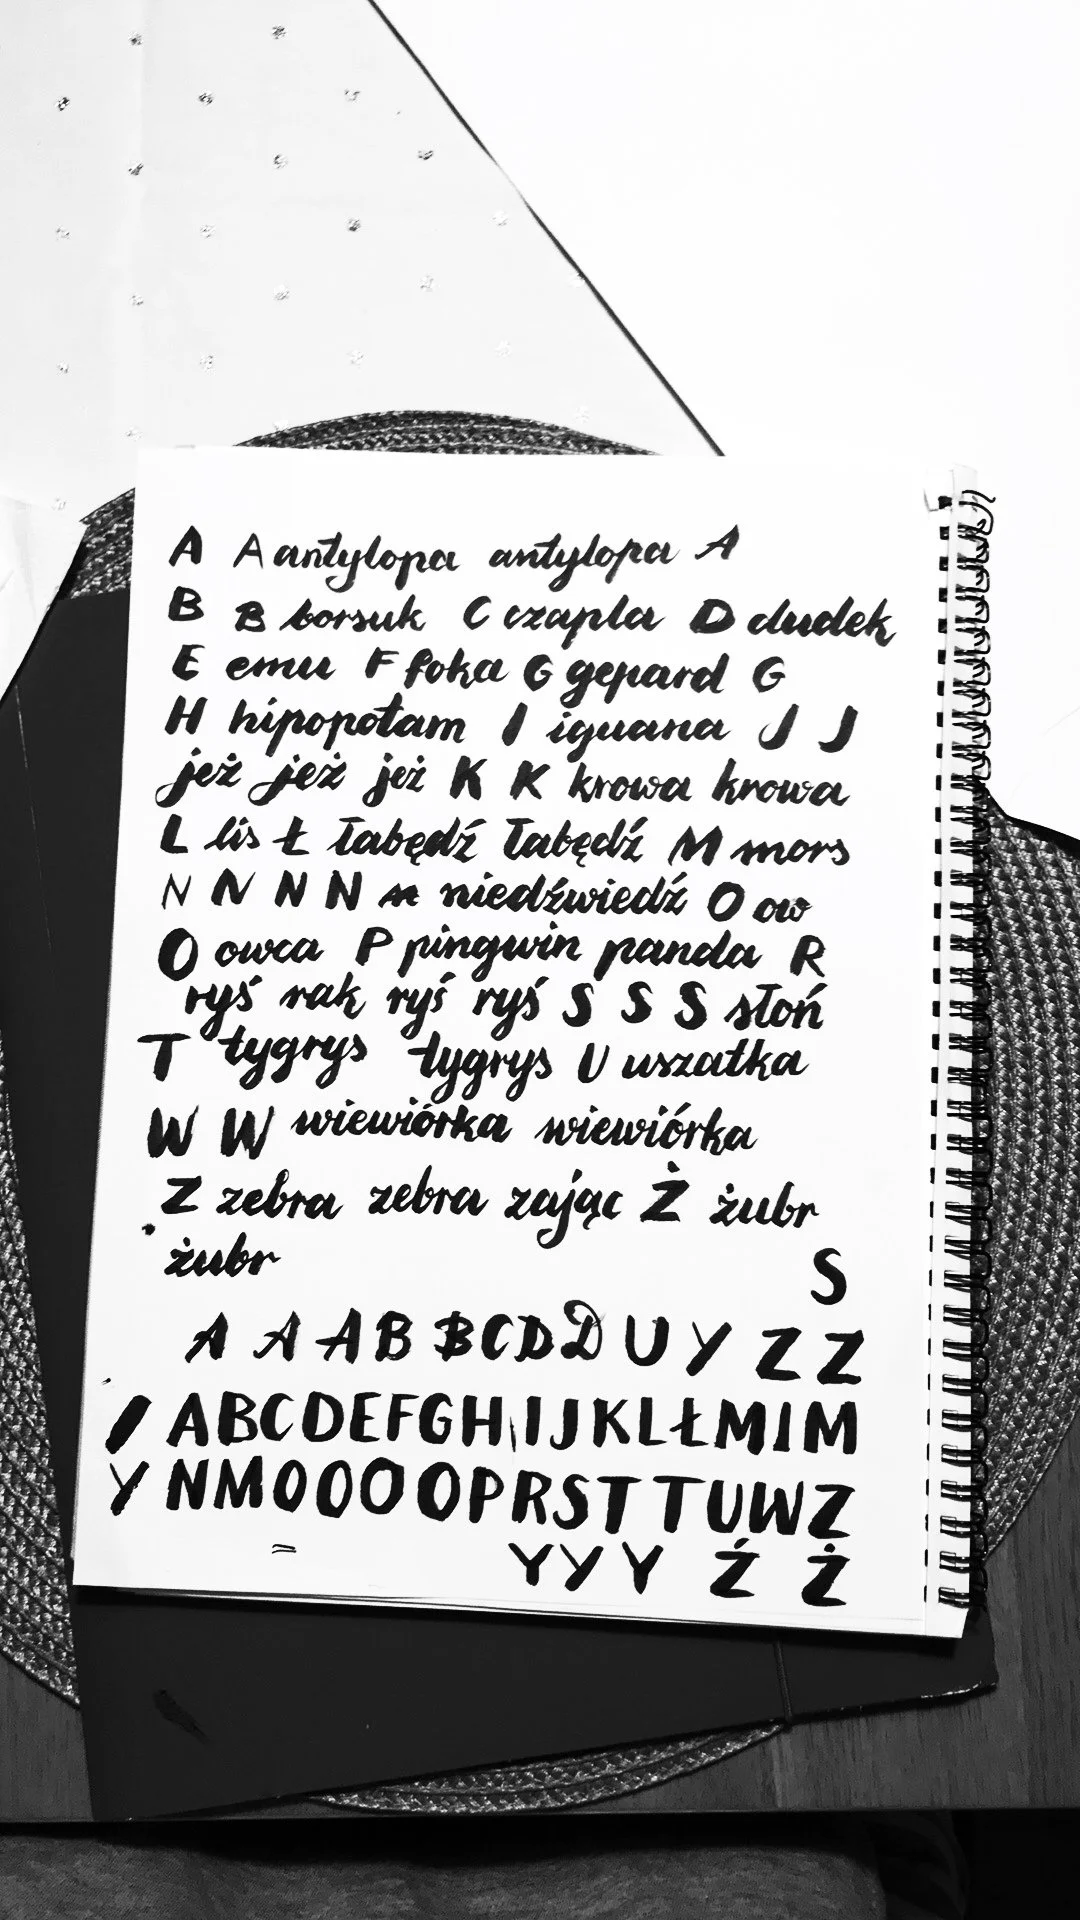 A A antylopa antylopa A
B B borsuk C czapla D dudek
E emu F foka G gepard G
H hipopotam I iguana J J
jeż jeż jeż K K krowa krowa
L lis Ł łabędź łabędź M mors
N N N N n niedźwiedź O ow
O owca P pingwin panda R
ryś rak ryś ryś S S S słoń
T tygrys tygrys U uszatka
W W wiewiórka wiewiórka
Z zebra zebra zając Ż żubr
żubr
S
A A A B B C D D U Y Z Z
A B C D E F G H I J K L Ł M I M
Y N M O O O O P R S T T U W Z
Y Y Y Ź Ż